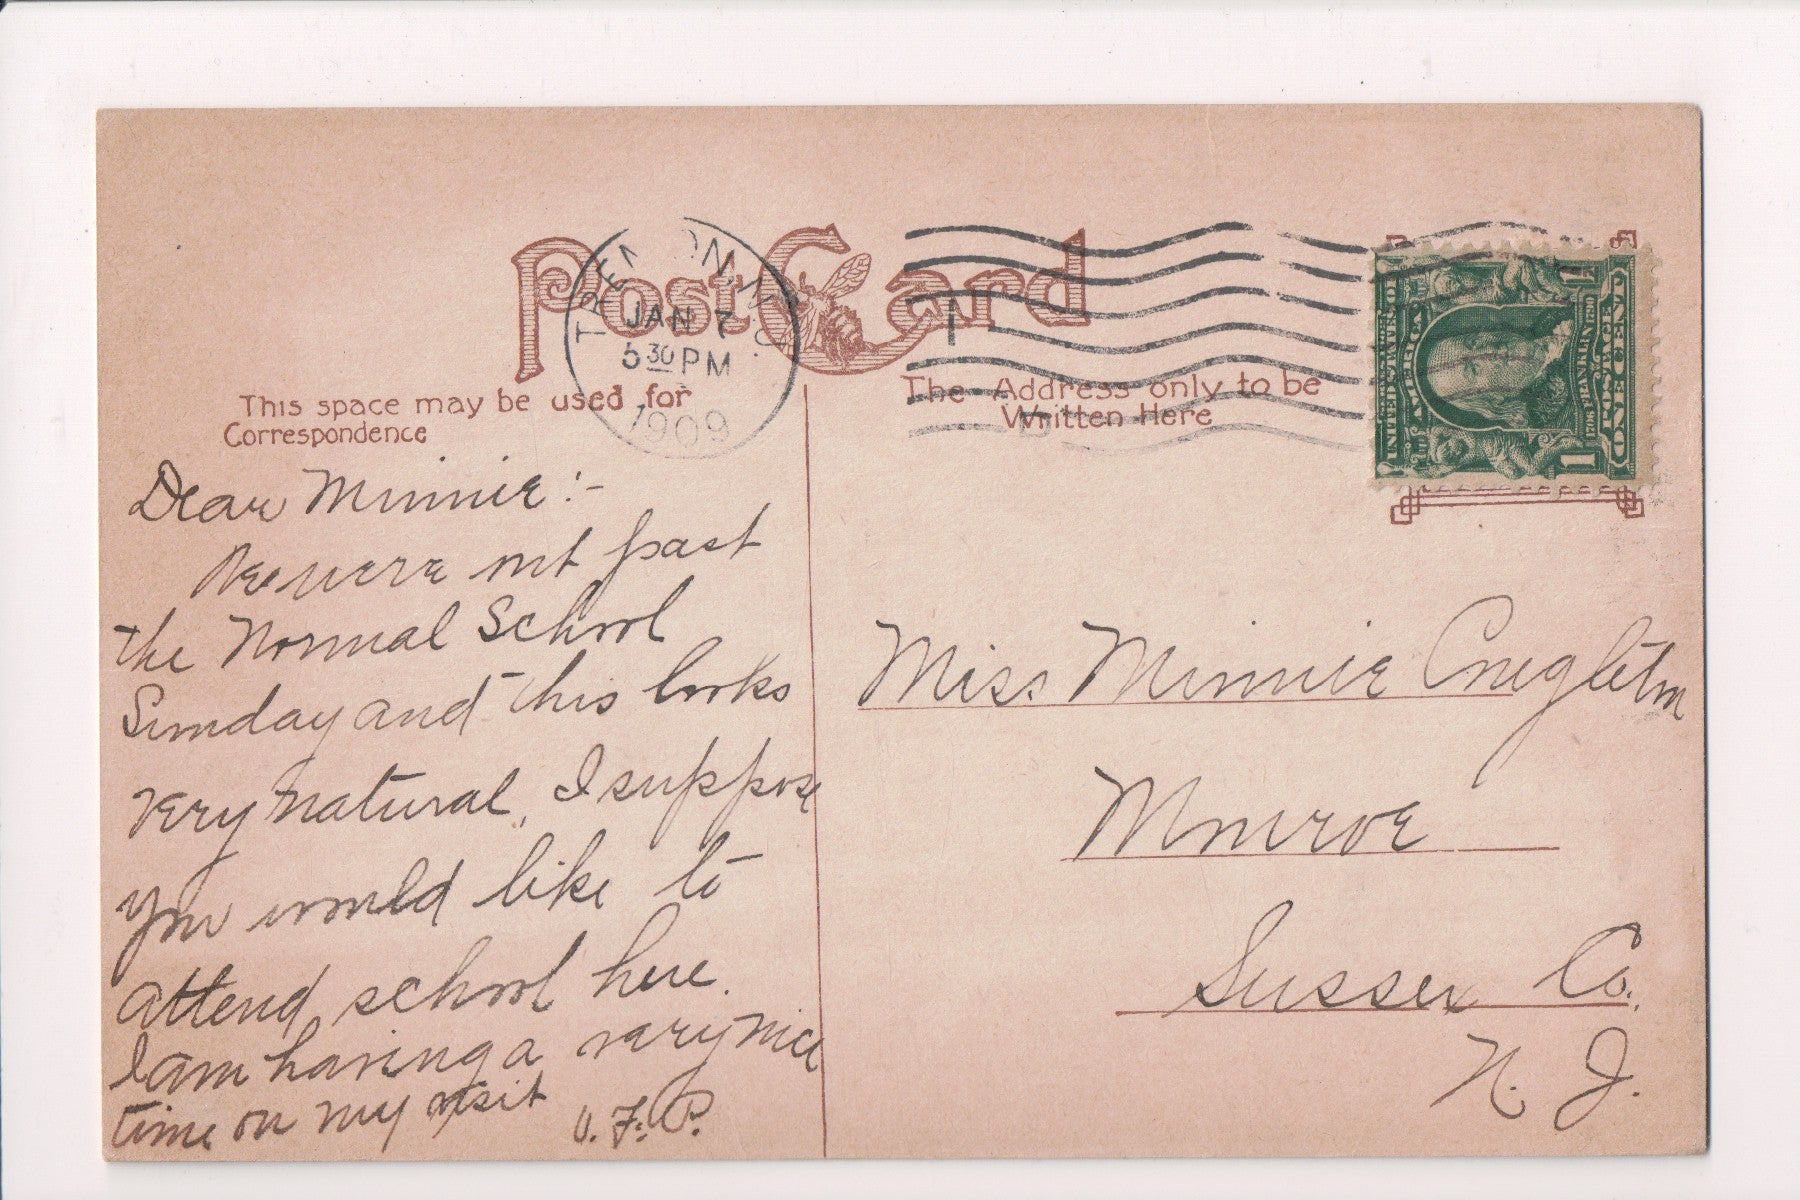 Post Card
TRENTON, N.J.
JAN 7
5 30 PM
1909
1
This space may be used for
Correspondence
The Address only to be
Written Here
UNITED STATES OF
AMERICA
1706 FRANKLIN 1790
POSTAGE
1 ONE CENT 1
Dear Minnie:-
We were out past
the Normal School
Sunday and this looks
very natural, I suppose
you would like to
attend school here.
I am having a very nice
time on my visit
F. P.
Miss Minnie
Monroe
Sussex Co.
N. J.